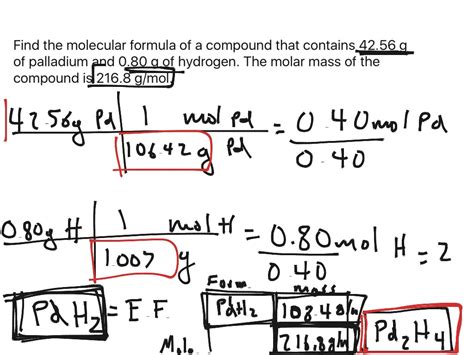 Find the molecular formula of a compound that contains 42.56 g
of palladium and 0.80 g of hydrogen. The molar mass of the
compound is 216.8 g/mol.
42.56g Pd | 1 mol Pd = 0.40 mol Pd
106.42 g Pd 0.40
0.80g H | 1 mol H = 0.80 mol H = 2
1.007 g 0.40
Form. mass
PdH2 = E F. PdH2 108.48
216.8 Pd2H4